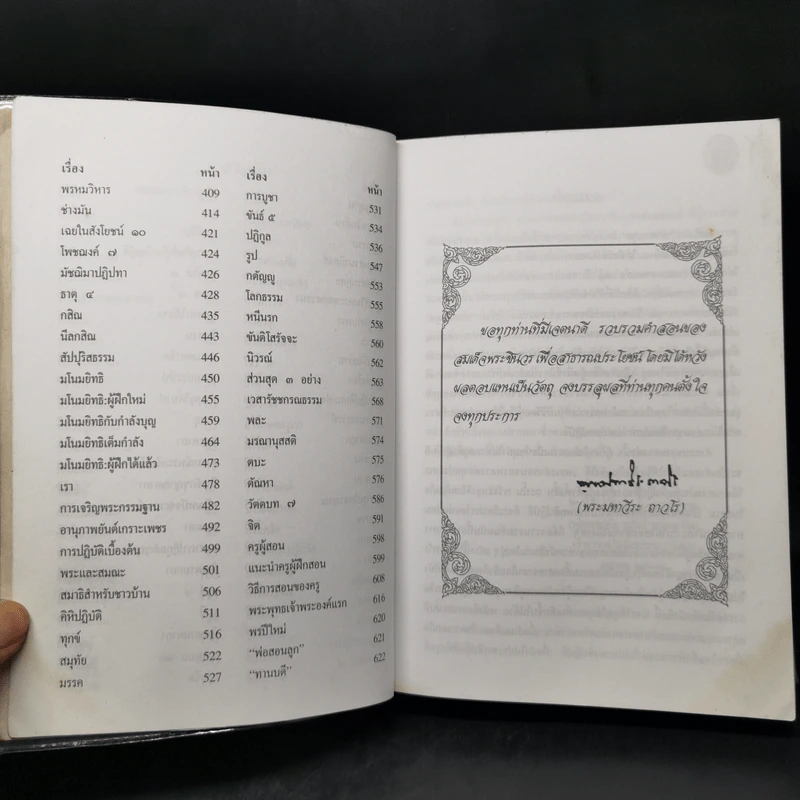 เรื่อง หน้า
พรหมวิหาร 409
ช่างมัน 414
เฉยในสังโยชน์ ๑๐ 421
โพชฌงค์ ๗ 424
มัชฌิมาปฏิปทา 426
ธาตุ ๔ 428
กสิณ 435
นีลกสิณ 443
สัปปุริสธรรม 446
มโนมยิทธิ 450
มโนมยิทธิ:ผู้ฝึกใหม่ 455
มโนมยิทธิกับกำลังบุญ 458
มโนมยิทธิเต็มกำลัง 464
มโนมยิทธิ:ผู้ฝึกได้แล้ว 473
เรา 478
การเจริญพระกรรมฐาน 482
อานุภาพยันต์เกราะเพชร 492
การปฏิบัติเบื้องต้น 499
พระและสมณะ 501
สมาธิสำหรับชาวบ้าน 506
คิหิปฏิบัติ 511
ทุกข์ 516
สมุทัย 522
มรรค 527
เรื่อง หน้า
การบูชา 531
ขันธ์ ๕ 534
ปฏิกูล 536
รูป 547
กตัญญู 553
โลกธรรม 555
หนีนรก 558
ขันติโสรัจจะ 560
นิวรณ์ 562
ส่วนสุด ๓ อย่าง 563
เวสารัชชกรณธรรม 568
พละ 571
มรณานุสสติ 574
ตบะ 575
ตัณหา 576
วัตตบท ๗ 586
จิต 591
ครูผู้สอน 598
แนะนำครูผู้ฝึกสอน 599
วิธีการสอนของครู 608
พระพุทธเจ้าพระองค์แรก 616
พรปีใหม่ 620
"พ่อสอนลูก" 621
"ทานบดี" 622
ขอทุกท่านที่มีเจตนาดี รวบรวมคำสอนของ
สมเด็จพระชินวร เพื่อสาธารณประโยชน์ โดยมิได้หวัง
ผลตอบแทนเป็นวัตถุ จงบรรลุผลที่ท่านทุกคนตั้งใจ
จงทุกประการ
(พระมหาวีระ ถาวโร)